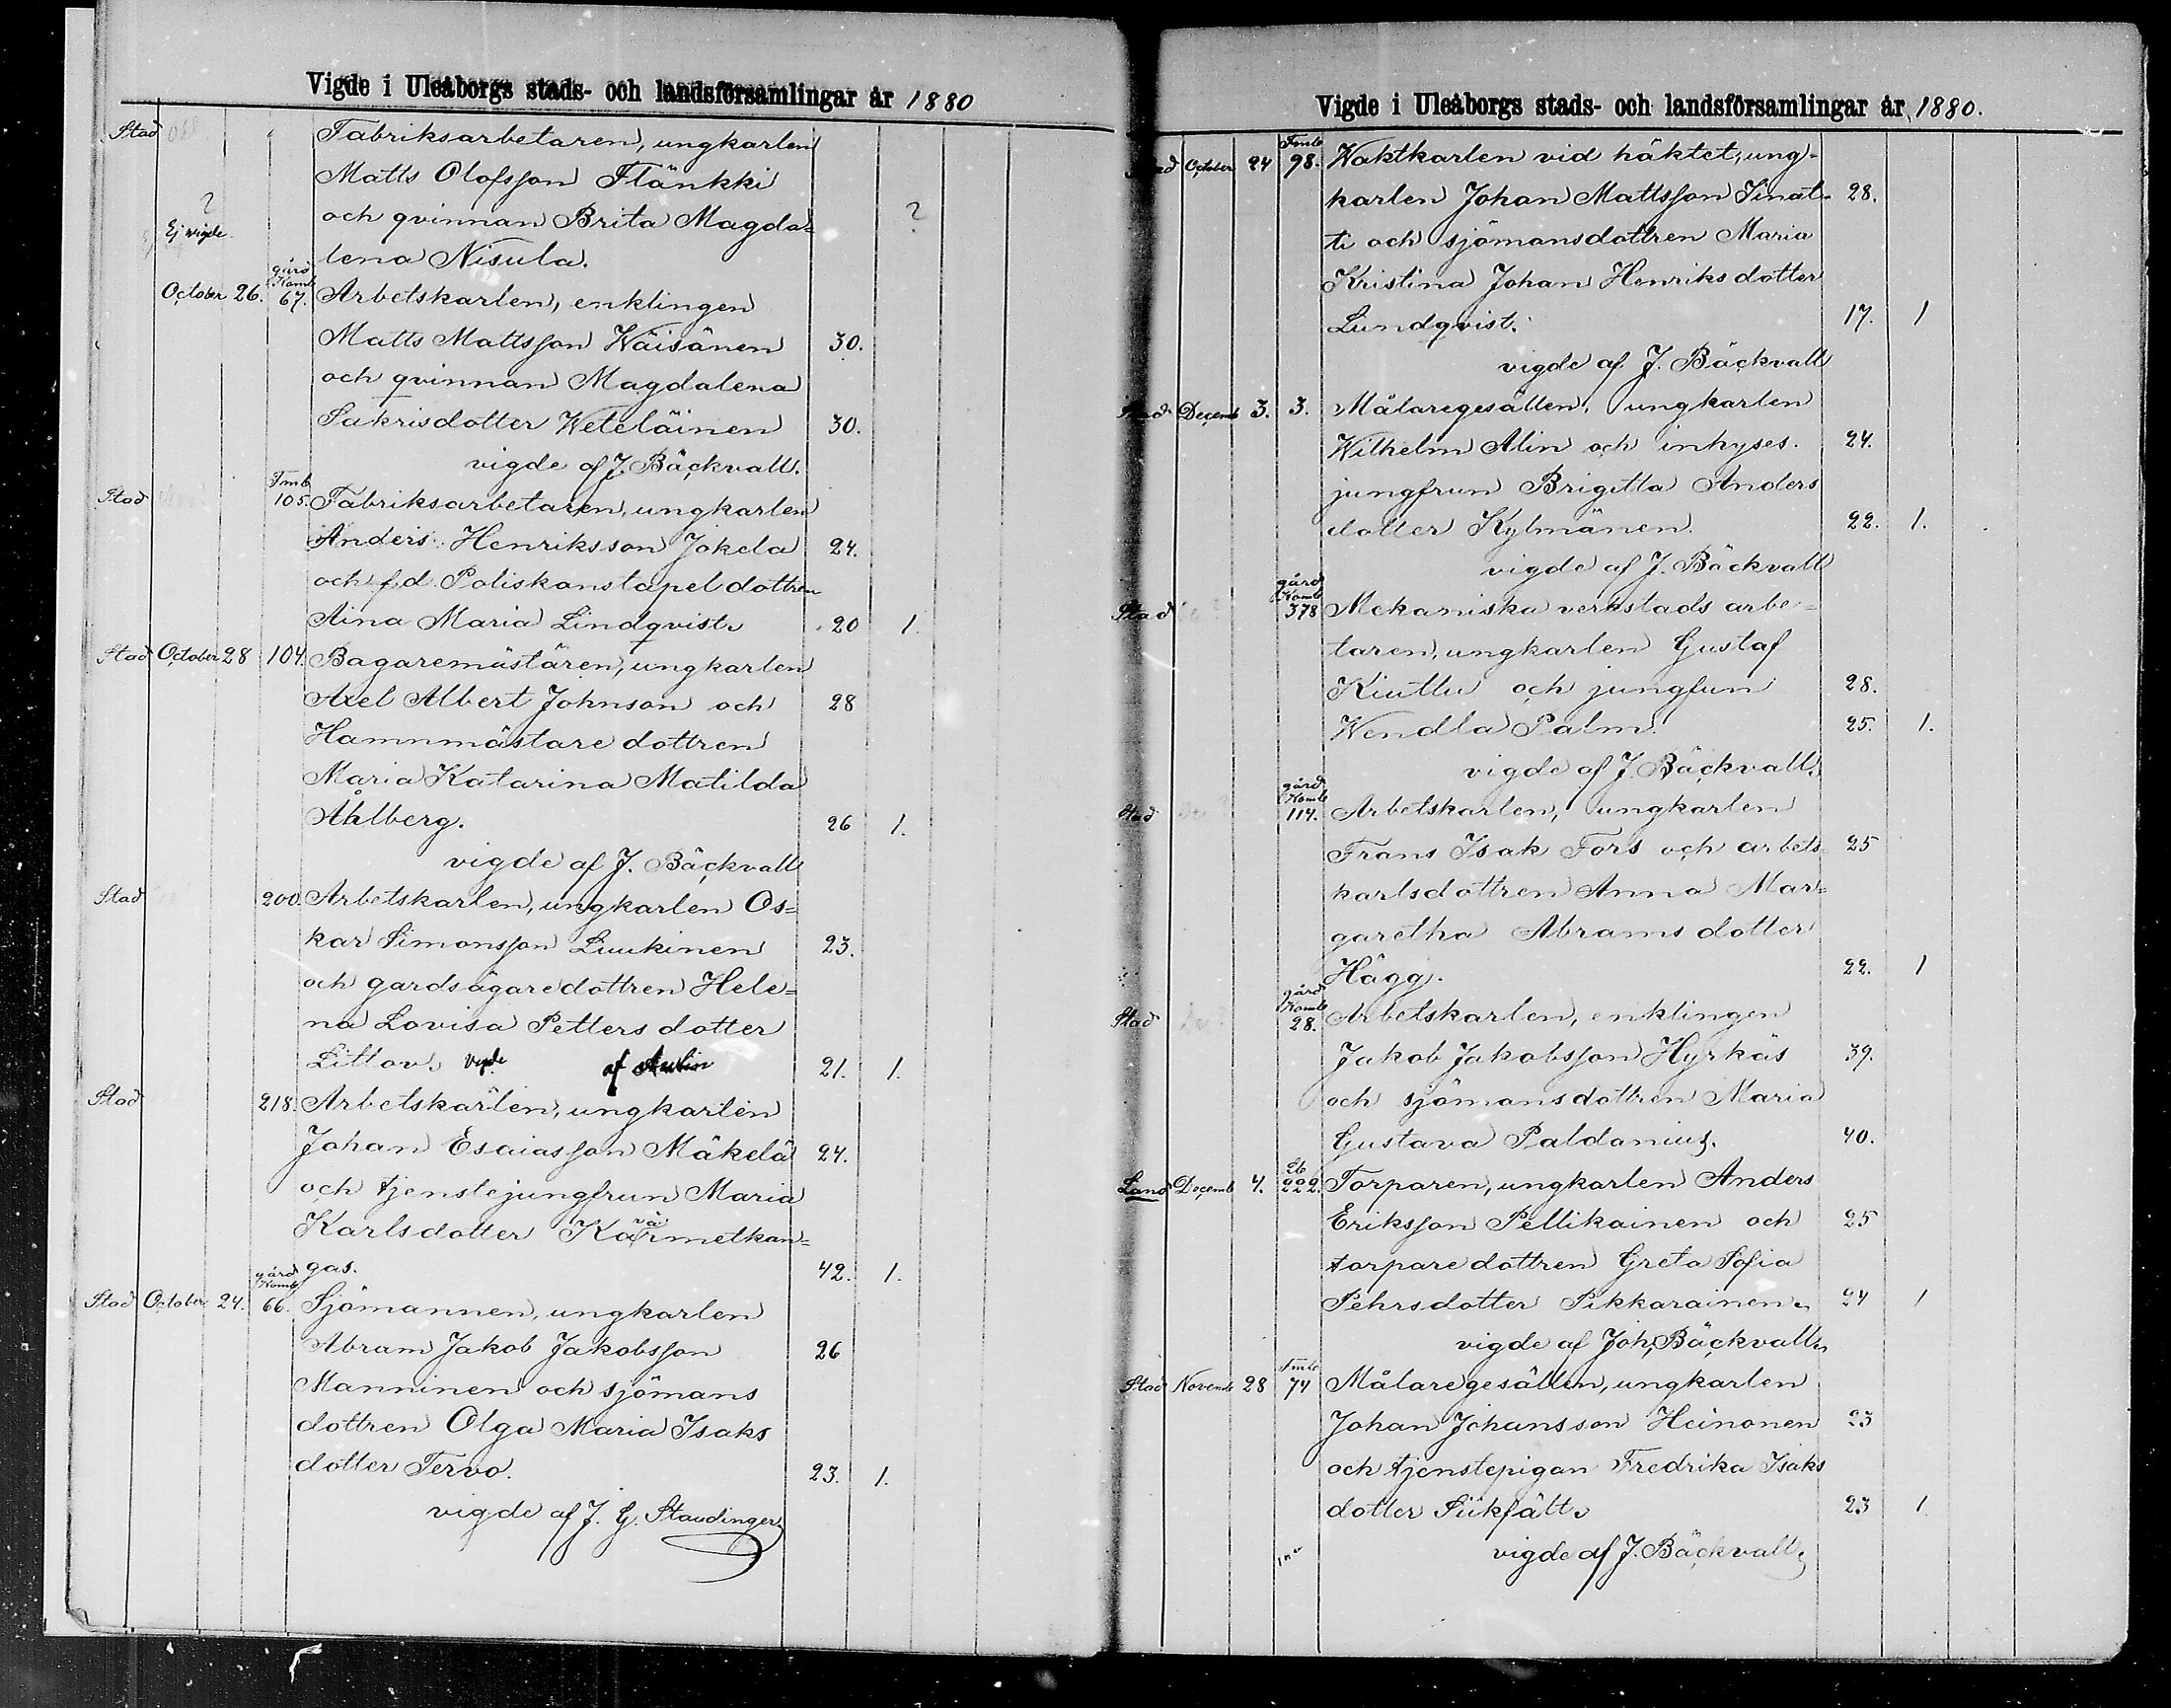 Vigde i Uleåborgs stads- och landsförsamlingar år 1880
Stad Fabriksarbetaren, ungkarlen
Matts Olofsson Flänkki
? och qvinnan Brita Magda= ?
Ej vigde lena Nisula.
October 26. gård Komb 67. Arbetskarlen, enklingen
Matts Mattsson Wäisänen 30.
och qvinnan Magdalena
Sakrisdotter Weteläinen 30.
vigde af J. Bäckvall.
Stad Fmb 105. Fabriksarbetaren, ungkarlen
Anders Henriksson Jokela 24.
och f.d. Poliskonstapel dottren
Aina Maria Lindqvist. 20 1.
Stad October 28 104. Bagaremästaren, ungkarlen
Axel Albert Johnson och 28
Hamnmästare dottren
Maria Katarina Matilda
Åhlberg. 26 1.
vigde af J. Bäckvall
Stad 200. Arbetskarlen, ungkarlen Os=
kar Simonsson Luukinen 23.
och gardsägaredottren Hele=
na Lovisa Petters dotter
Littov. vigde af Aulin 21. 1.
Stad 218. Arbetskarlen, ungkarlen
Johan Esaiasson Mäkelä 24.
och tjenstejungfrun Maria
Karlsdotter Kavärmetkan=
gas. 42. 1.
Stad October 24. gård Komb 66. Sjömannen, ungkarlen
Abram Jakob Jakobsson 26
Manninen och sjömans
dottren Olga Maria Isaks
dotter Tervo. 23. 1.
vigde af J. G. Staudinger
Vigde i Uleåborgs stads- och landsförsamlingar år 1880.
Stad October 24 Fmb 98. Waktkarlen vid häktet, ung-
karlen Johan Mattsson Sinal- 28.
ti och sjömansdottren Maria
Kristina Johan Henriksdotter
Lundqvist. 17. 1
vigde af J. Bäckvall
Stad Decemb 3. 3. Målaregesällen, ungkarlen
Wilhelm Alin och inhyses. 24.
jungfrun Brigitta Anders
dotter Kylmänen. 22. 1.
vigde af J. Bäckvall
Stad gård Komb 378 Mekaniska verkstads arbe=
taren, ungkarlen Gustaf
Kiuttu och jungfun 28.
Wendla Palm. 25. 1.
vigde af J. Bäckvall.
Stad gård Komb 114. Arbetskarlen, ungkarlen
Frans Isak Fors och arbets- 25
karlsdottren Anna Mar=
garetha Abrams dotter
Hägg. 22. 1
Stad gård Komb 28. Arbetskarlen, enklingen
Jakob Jakobsson Hyrkäs 39.
och sjömansdottren Maria
Gustava Paldanius. 40.
Land Decemb 4. Lb 222. Torparen, ungkarlen Anders
Eriksson Pellikainen och 25
torparedottren Greta Sofia
Pehrsdotter Pikkarainen. 24 1
vigde af Joh. Bäckvall.
Stad Novemb 28 Fmb 74 Målaregesällen, ungkarlen
Johan Johansson Heinonen 23
och tjenstepigan Fredrika Isaks
dotter Siikfält. 23 1
vigde af J. Bäckvall.